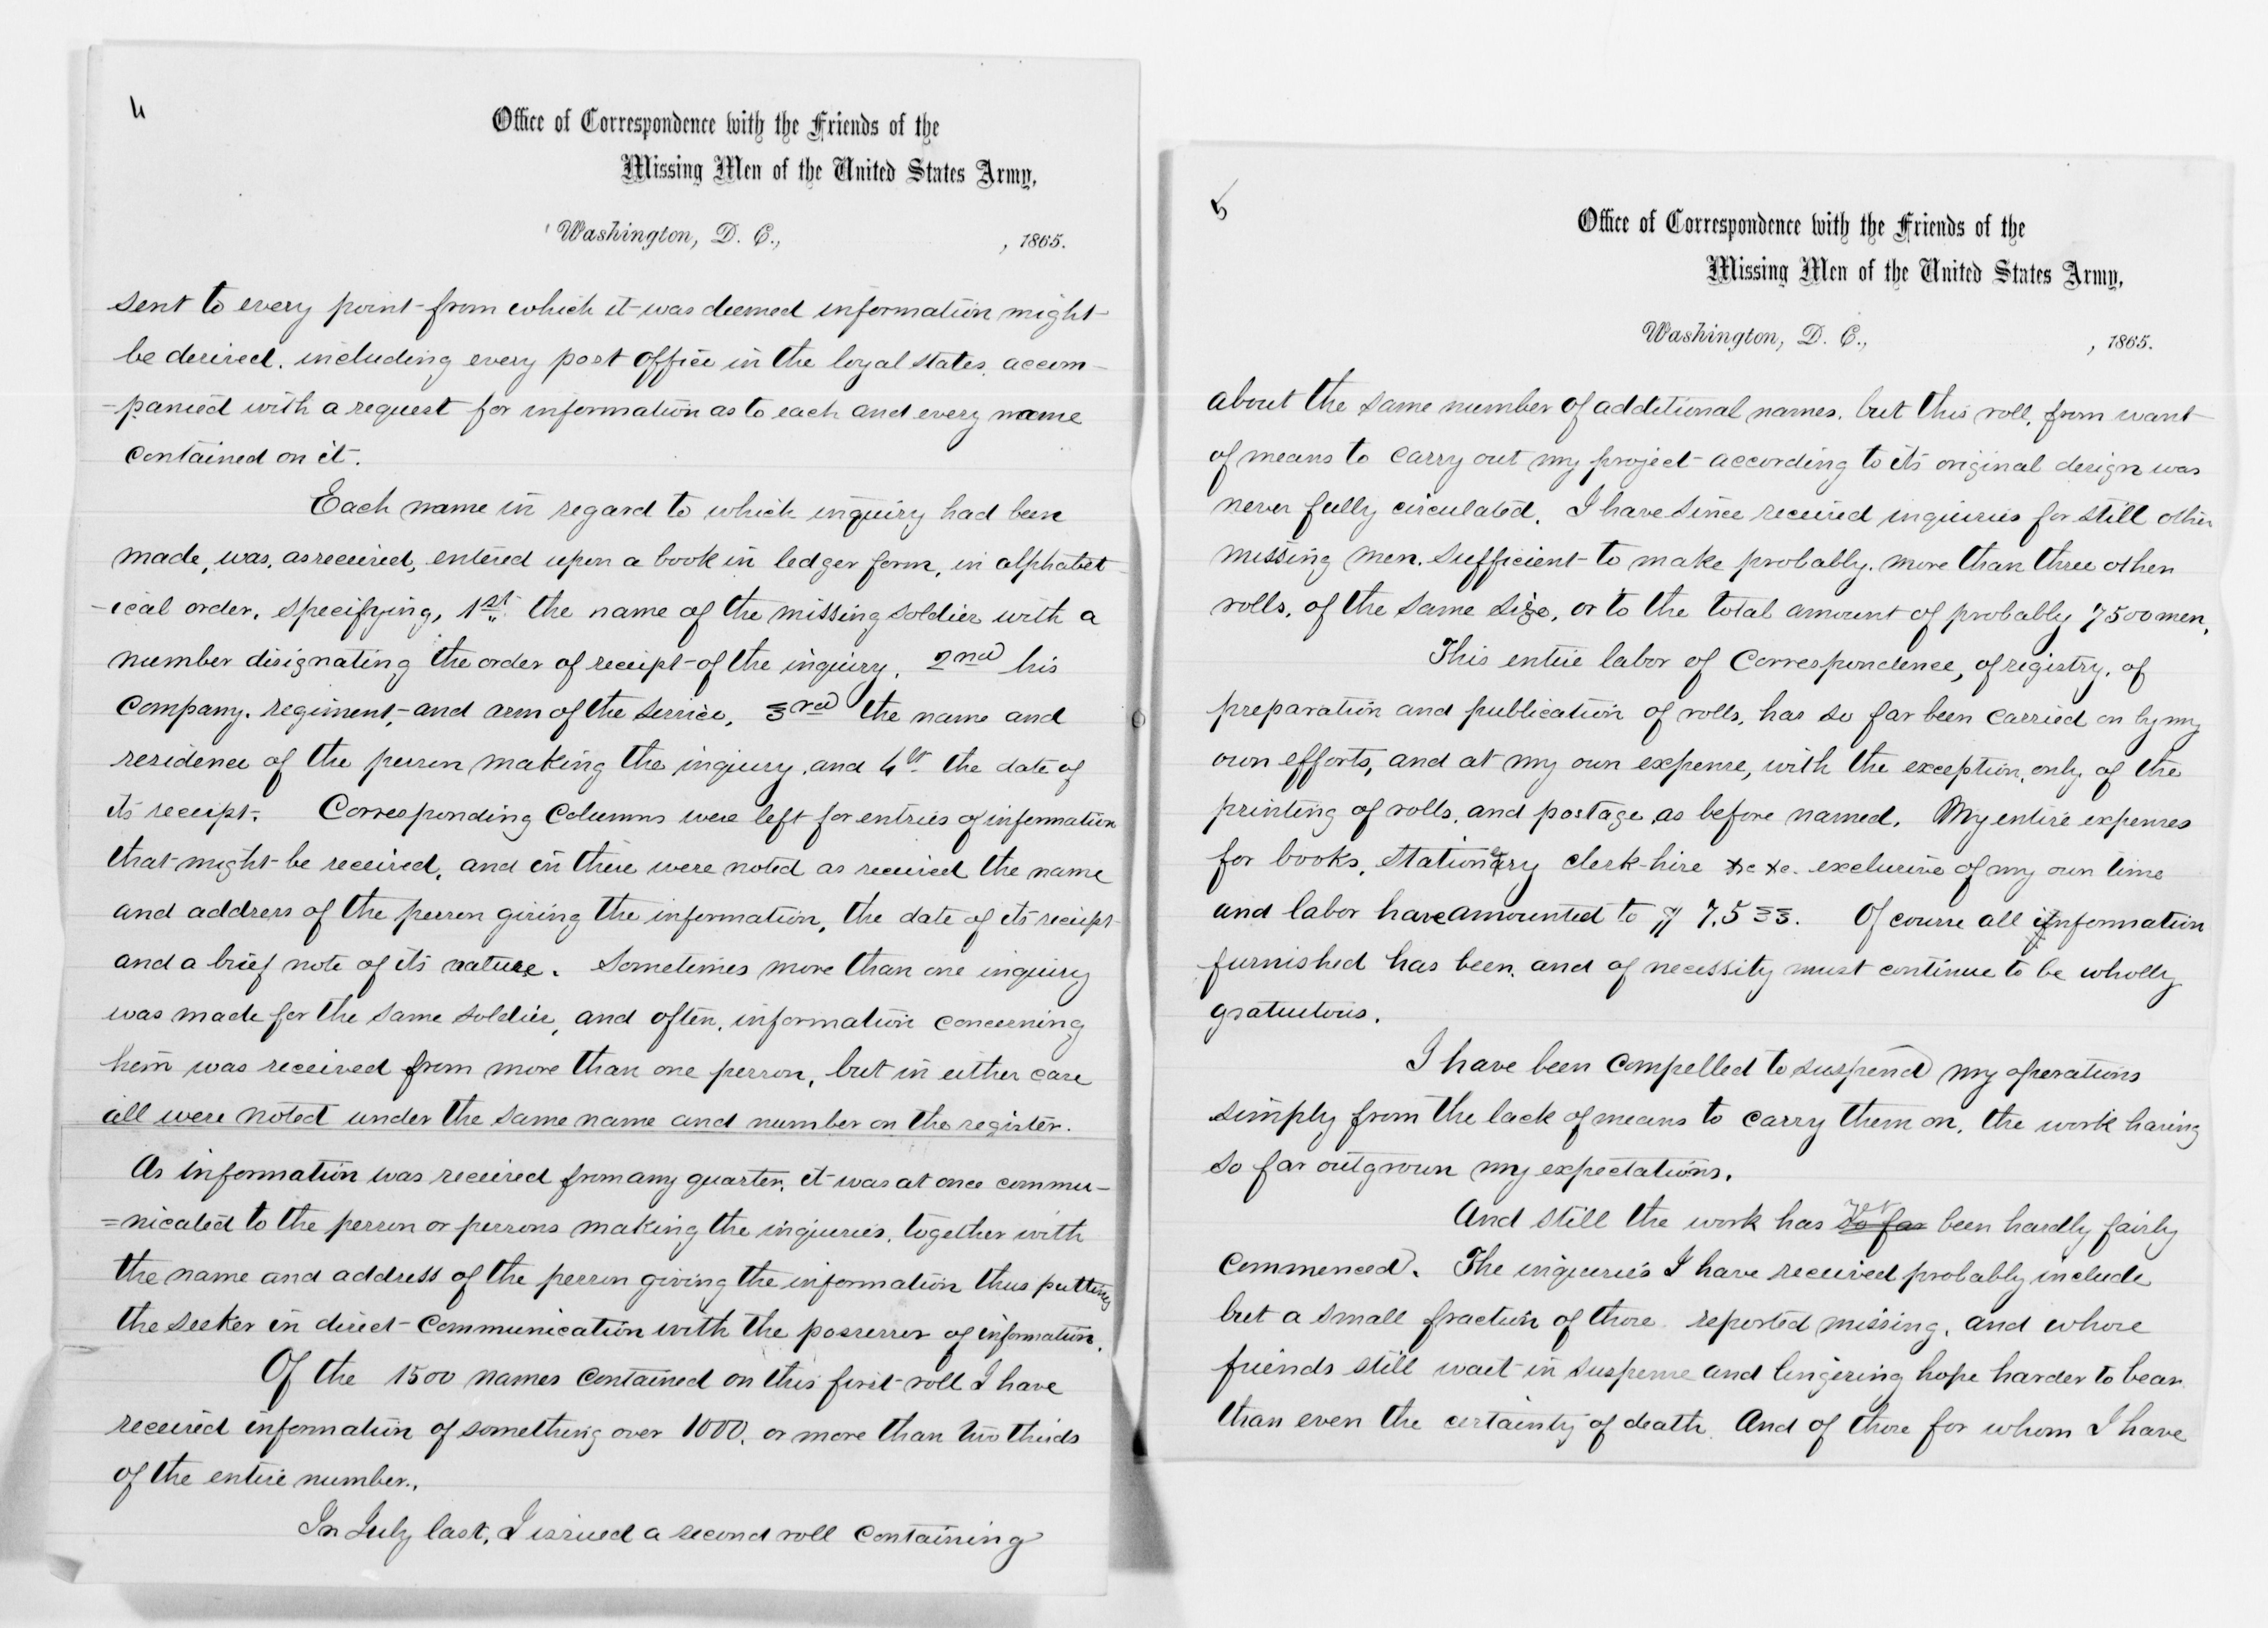 4
Office of Correspondence with the Friends of the
Missing Men of the United States Army,
Washington, D. C., , 1865.
sent to every point from which it was deemed information might
be desired, including every post office in the loyal states, accom-
-panied with a request for information as to each and every name
contained on it.
Each name in regard to which inquiry had been
made, was, as received, entered upon a book in ledger form, in alphabet-
-ical order, specifying, 1st the name of the missing soldier with a
number disignating the order of receipt of the inquiry, 2nd his
company, regiment, and arm of the service, 3rd the name and
residence of the person making the inquiry, and 4th the date of
its receipt. Corresponding columns were left for entries of information
that might be received, and in these were noted as received the name
and address of the person giving the information, the date of its receipt
and a brief note of its nature. Sometimes more than one inquiry
was made for the same soldier, and often, information concerning
him was received from more than one person, but in either case
all were noted under the same name and number on the register.
As information was received from any quarter, it was at once commu-
=nicated to the person or persons making the inquiries, together with
the name and address of the person giving the information thus putting
the seeker in direct communication with the possessor of information.
Of the 1500 names contained on this first roll I have
received information of something over 1000, or more than two thirds
of the entire number.
In July last, I issued a second roll containing
5
Office of Correspondence with the Friends of the
Missing Men of the United States Army,
Washington, D. C., , 1865.
about the same number of additional names, but this roll, from want
of means to carry out my project according to its original design was
never fully circulated. I have since received inquiries for still other
missing men, sufficient to make probably, more than three other
rolls, of the same size, or to the total amount of probably 7500 men.
This entire labor of correspondence, of registry, of
preparation and publication of rolls, has so far been carried on by my
own efforts, and at my own expense, with the exception, only, of the
printing of rolls, and postage, as before named. My entire expenses
for books, stationery clerk-hire &c &c. exclusive of my own time
and labor have amounted to $ 7,533. Of course all information
furnished has been, and of necessity must continue to be wholly
gratuitous.
I have been compelled to suspend my operations
simply from the lack of means to carry them on, the work having
so far outgrown my expectations.
And still the work has so far yet been hardly fairly
commenced. The inquiries I have received probably include
but a small fraction of those reported missing, and whose
friends still wait in suspense and lingering hope harder to bear
than even the certainty of death. And of those for whom I have